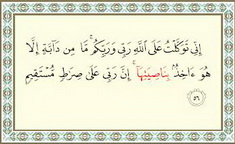 إِنِّي تَوَكَّلْتُ عَلَى ٱللَّهِ رَبِّي وَرَبِّكُم ۚ مَّا مِن دَآبَّةٍ إِلَّا
هُوَ ءَاخِذٌۢ بِنَاصِيَتِهَآ ۚ إِنَّ رَبِّي عَلَىٰ صِرَٰطٍ مُّسْتَقِيمٍ
٥٦